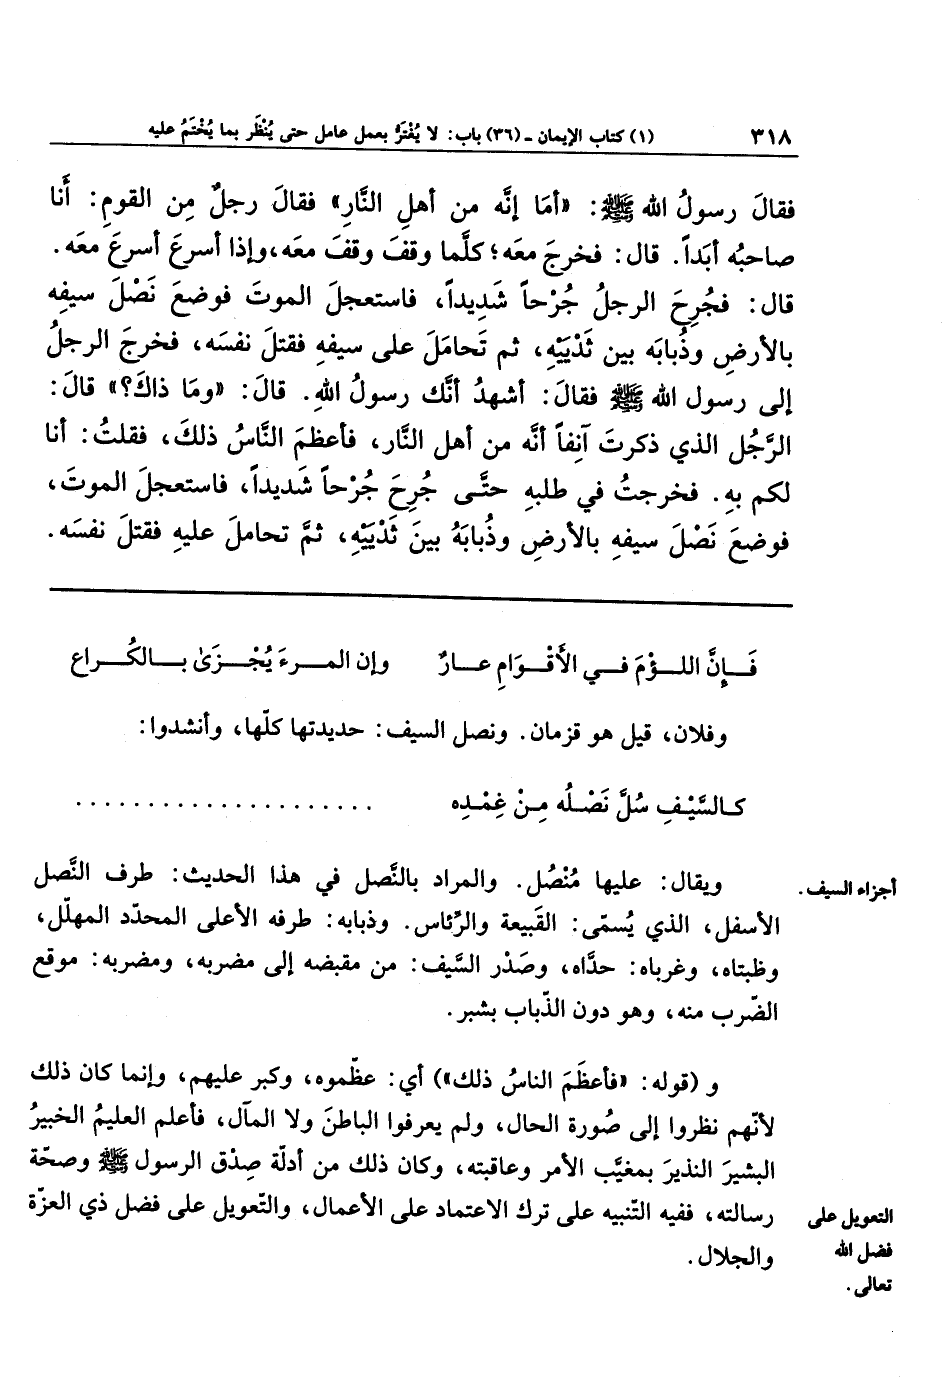 ٣١٨
(١) كتاب الإيمان - (٣٦) باب: لا يُغْتَرُّ بعمل عامل حتى يُنْظَر بما يُخْتَمُ عليه
فقالَ رسولُ الله ﷺ: «أمَا إنَّه من أهلِ النَّارِ» فقالَ رجلٌ مِن القومِ: أَنا
صاحبُه أبَداً. قال: فخرجَ معَه؛ كلَّما وقفَ وقفَ معَه، وإذا أسرعَ أسرعَ معَه.
قال: فجُرِحَ الرجلُ جُرْحاً شَدِيداً، فاستعجلَ الموتَ فوضعَ نَصْلَ سيفِه
بالأرضِ وذُبابَه بين ثَدْيَيْهِ، ثم تَحامَلَ على سيفهِ فقتلَ نفسَه، فخرجَ الرجلُ
إلى رسول الله ﷺ فقالَ: أشهدُ أنَّك رسولُ اللهِ. قالَ: «ومَا ذاكَ؟» قالَ:
الرَّجُل الذي ذكرتَ آنِفاً أنَّه من أهل النَّار، فأعظمَ النَّاسُ ذلكَ، فقلتُ: أنا
لكم بهِ. فخرجتُ في طلبهِ حتَّى جُرِحَ جُرْحاً شَديداً، فاستعجلَ الموتَ،
فوضعَ نَصْلَ سيفهِ بالأرضِ وذُبابَهُ بينَ ثَدْيَيْهِ، ثمَّ تحاملَ عليهِ فقتلَ نفسَه.
فَـإِنَّ اللـؤْمَ فـي الأَقْـوَامِ عـارٌ وإن المـرءَ يُجْـزَىٰ بـالكُـراع
وفلان، قيل هو قزمان. ونصل السيف: حديدتها كلّها، وأنشدوا:
كـالسَّيْـفِ سُلَّ نَصْـلُه مِـنْ غِمْـدِه .....................
ويقال: عليها مُنْصُل. والمراد بالنَّصل في هذا الحديث: طرف النَّصل
أجزاء السيف.
الأسفل، الذي يُسمّى: القَبيعة والرِّئاس. وذبابه: طرفه الأعلى المحدّد المهلّل،
وظبتاه، وغرباه: حدَّاه، وصَدْر السَّيف: من مقبضه إلى مضربه، ومضربه: موقع
الضّرب منه، وهو دون الذّباب بشبر.
و (قوله: «فأعظَمَ الناسُ ذلك») أي: عظّموه، وكبر عليهم، وإنما كان ذلك
لأنّهم نظروا إلى صُورة الحال، ولم يعرفوا الباطنَ ولا المآل، فأعلم العليمُ الخبيرُ
البشيرَ النذيرَ بمغيَّب الأمر وعاقبته، وكان ذلك من أدلّة صِدْق الرسول ﷺ وصحّة
رسالته، ففيه التّنبيه على ترك الاعتماد على الأعمال، والتّعويل على فضل ذي العزّة
والجلال.
التعويل على
فضل الله
تعالى.